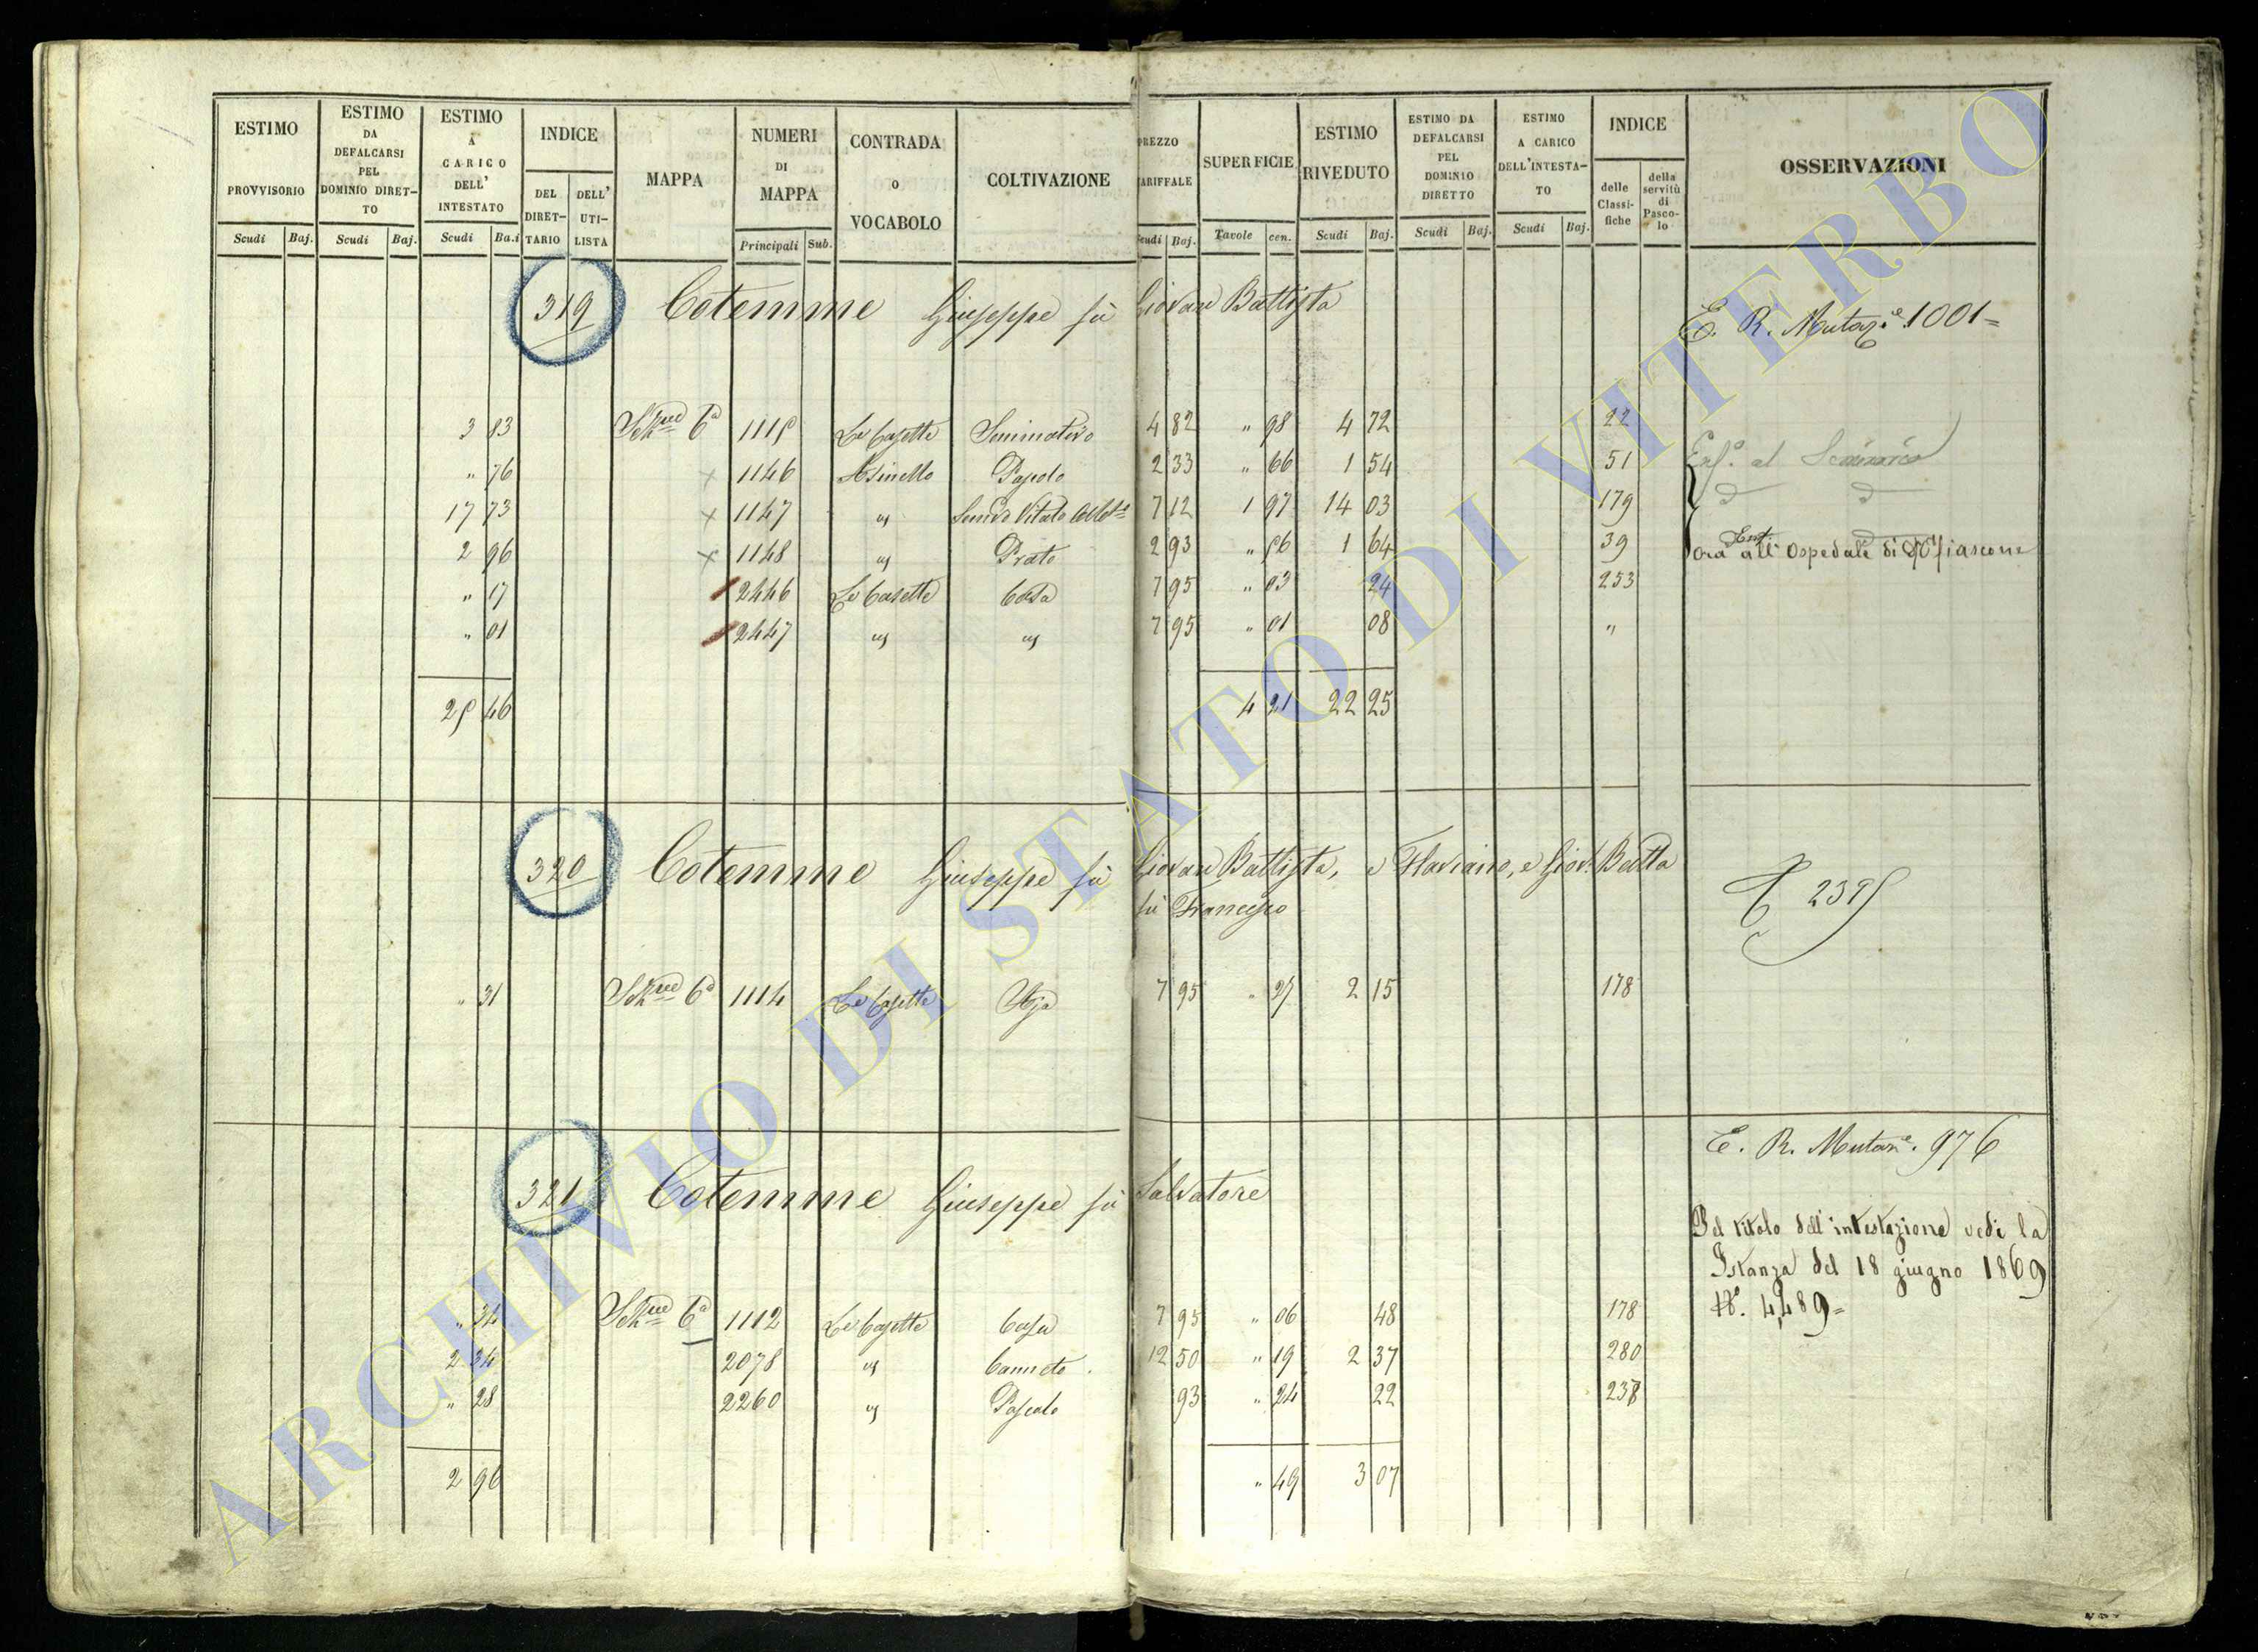 ESTIMO PROVVISORIO Scudi Baj.
ESTIMO DA DEFALCARSI PEL DOMINIO DIRET-TO Scudi Baj.
ESTIMO A CARICO DELL' INTESTATO Scudi Ba.i
INDICE DEL DIRET-TARIO DELL' UTI-LISTA
MAPPA
NUMERI DI MAPPA Principali Sub.
CONTRADA O VOCABOLO
COLTIVAZIONE
PREZZO TARIFFALE Scudi Baj.
SUPERFICIE Tavole cen.
ESTIMO RIVEDUTO Scudi Baj.
ESTIMO DA DEFALCARSI PEL DOMINIO DIRETTO Scudi Baj.
ESTIMO A CARICO DELL'INTESTA-TO Scudi Baj.
INDICE delle Classi-fiche della servitù di Pasco-lo
OSSERVAZIONI
319 Cotemme Giuseppe fù Giovan Battista
E. R. Mutaz.e 1001=
3 83 6a 1115 Le Casette Seminativo 4 82 " 98 4 72 22
" 76 x 1146 Asinello Pascolo 2 33 " 66 1 54 51
17 73 x 1147 " 7 12 1 97 14 03 179
2 96 x 1148 " Prato 2 93 " 56 1 64 39
Enf. al Seminario
ora all' Ospedale di M.fiascone
" 17 2446 Le Casette Casa 7 95 " 03 24 253
" 01 2447 " " 7 95 " 01 08 "
25 46 4 21 22 25
320 Cotemme Giuseppe fù Giovan Battista, e Flaviano, e Giov. Batta
fù Francesco
2395
" 31 6a 1114 Le Casette Aja 7 95 " 27 2 15 178
E. R. Mutaz.e 976
321 Cotemme Giuseppe fù Salvatore
Del titolo dell'intestazione vedi la
Istanza del 18 giugno 1869
N°. 4,489=
" 34 6a 1112 Le Casette Casa 7 95 " 06 48 178
2 34 2078 " Canneto 12 50 " 19 2 37 280
" 28 2260 " Pascolo 93 " 24 22 238
2 96 " 49 3 07
ARCHIVIO DI STATO DI VITERBO